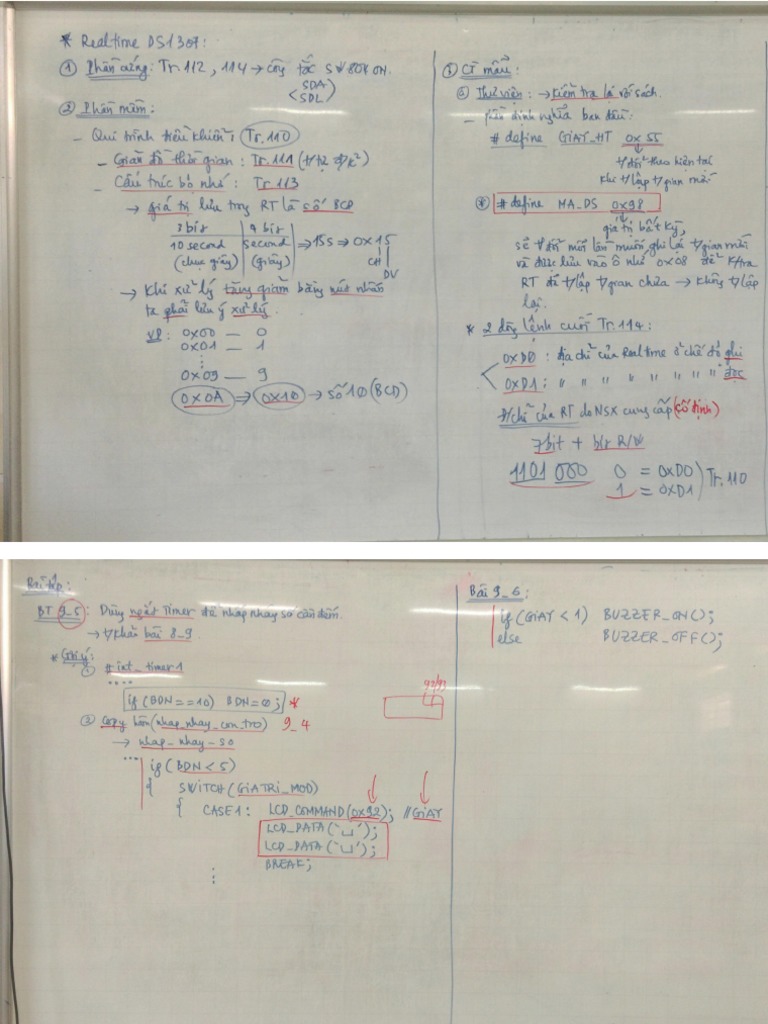 * Realtime DS1307:
① Phần cứng: Tr.112, 114 → công tắc SW804 ON.
SDA
SDL
② Phần mềm:
- Qui trình điều khiển: Tr.110
- Giản đồ thời gian: Tr.111
- Cấu trúc bộ nhớ: Tr.113
→ giá trị lưu trong RT là số BCD
3 bit | 4 bit
10 second | second → 15s → 0x15
(chục giây) | (giây)
CH
DV
→ Khi xử lý tăng giảm bằng nút nhấn
ta phải lưu ý xử lý.
VD: 0x00 — 0
0x01 — 1
⋮
0x09 — 9
0x0A ⇒ 0x10 → số 10 (BCD)
③ CT mẫu:
Thư viện: → kiểm tra lại với sách.
- phần định nghĩa ban đầu:
# define GIAY_HT 0x55
t/đổi theo hiện tại
khi t/lập t/gian mới
* # define MA_DS 0x98
giá trị bất kỳ,
sẽ t/đổi mỗi lần muốn ghi lại t/gian mới
và được lưu vào ô nhớ 0x08 để k/tra
RT đã t/lập t/gian chưa → không t/lập
lại.
* 2 dòng lệnh cuối Tr.114:
0xD0: địa chỉ của Realtime ở chế độ ghi
0xD1: " " " " " " " đọc
đ/chỉ của RT do NSX cung cấp (cố định)
7bit + bit R/W
1101 000 0 = 0xD0
1 = 0xD1
Tr.110
Bài tập:
BT 9_5: Dùng ngắt Timer để nhấp nháy số cần đếm.
→ t/khảo bài 8_9.
* Gợi ý:
① # int_timer1
....
if (BDN==10) BDN=0; *
② Copy hàm (nhap_nhay_con_tro) 9_4
→ nhap_nhay_so
... if (BDN < 5)
{ SWITCH (GIATRI_MOD)
{ CASE1: LCD_COMMAND(0x92); //GIAY
LCD_DATA('␣');
LCD_DATA('␣');
BREAK;
⋮
92/93
Bài 9_6:
if (GIAY < 1) BUZZER_ON();
else BUZZER_OFF();